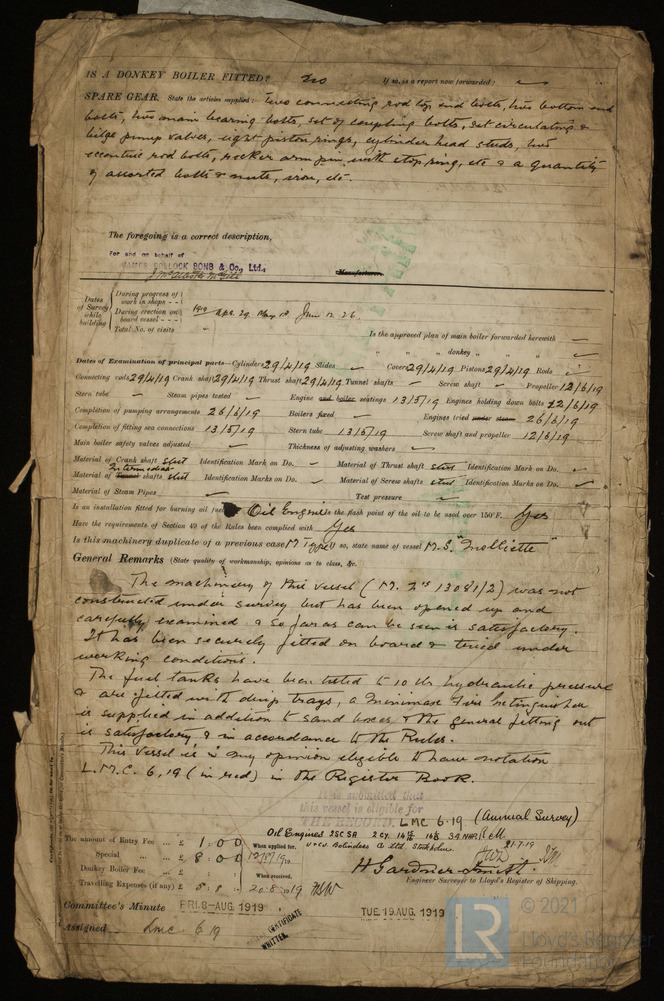 IS A DONKEY BOILER FITTED? No If so, is a report now forwarded?
SPARE GEAR. State the articles supplied: Two connecting rod top end bolts, two bottom end
bolts, two main bearing bolts, set of coupling bolts, set circulating &
bilge pump valves, eight piston rings, cylinder head studs, two
eccentric rod bolts, rocker arm pin with stop ring, etc & a quantity
of assorted bolts & nuts, iron, etc.
The foregoing is a correct description,
For and on behalf of
JAMES POLLOCK SONS & Co., Ltd., Manufacturer.
Dates of Survey while building
During progress of work in shops - -
During erection on board vessel - - - 1919 Apr. 29. May 13 June 12. 26.
Total No. of visits
Is the approved plan of main boiler forwarded herewith
" " " donkey " " "
Dates of Examination of principal parts—Cylinders 29/4/19 Slides Covers 29/4/19 Pistons 29/4/19 Rods
Connecting rods 29/4/19 Crank shaft 29/4/19 Thrust shaft 29/4/19 Tunnel shafts Screw shaft Propeller 12/6/19
Stern tube Steam pipes tested Engine and boiler seatings 13/5/19 Engines holding down bolts 12/6/19
Completion of pumping arrangements 26/6/19 Boilers fixed Engines tried under steam 26/6/19
Completion of fitting sea connections 13/5/19 Stern tube 13/5/19 Screw shaft and propeller 12/6/19
Main boiler safety valves adjusted Thickness of adjusting washers
Material of Crank shaft steel Identification Mark on Do. Material of Thrust shaft steel Identification Mark on Do.
Intermediate
Material of Tunnel shafts steel Identification Marks on Do. Material of Screw shafts steel Identification Marks on Do.
Material of Steam Pipes Test pressure
Is an installation fitted for burning oil fuel Oil Engine Is the flash point of the oil to be used over 150°F. Yes
Have the requirements of Section 49 of the Rules been complied with Yes
Is this machinery duplicate of a previous case M Type If so, state name of vessel M.S. "Molliette"
General Remarks (State quality of workmanship, opinions as to class, &c.
The machinery of this vessel (M. Nos 13081/2) was not
constructed under survey but has been opened up and
carefully examined & so far as can be seen is satisfactory.
It has been securely fitted on board & tried under
working conditions.
The fuel tanks have been tested to 10 lb hydraulic pressure
& are fitted with drip trays, a Minimax Fire Extinguisher
is supplied in addition to sand boxes & the general fitting out
is satisfactory & in accordance to the Rules.
This vessel is in my opinion eligible to have notation
L.M.C. 6,19 (in red) in the Register Book.
It is submitted that
this vessel is eligible for
THE RECORD. LMC 6.19 (Annual Survey)
Oil Engines 2SC SA 2 Cy.
Bolinders Co Ltd. Stockholm. 21.7.19
The amount of Entry Fee £ 1 : 0 : 0 When applied for,
Special £ 8 : 0 : 0
Donkey Boiler Fee £ When received,
Travelling Expenses (if any) £ 20.8.1919
Engineer Surveyor to Lloyd's Register of Shipping.
Committee's Minute FRI. 8-AUG. 1919 TUE. 19 AUG. 1919
Assigned LMC 6.19
CERTIFICATE
WRITTEN.
LR
© 2021
Lloyd's Register
Foundation